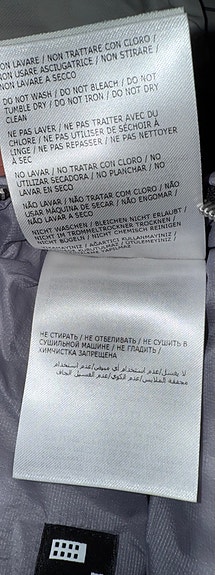 NON LAVARE / NON TRATTARE CON CLORO /
NON USARE ASCIUGATRICE / NON STIRARE /
NON LAVARE A SECCO
DO NOT WASH / DO NOT BLEACH / DO NOT
TUMBLE DRY / DO NOT IRON / DO NOT DRY
CLEAN
NE PAS LAVER / NE PAS TRAITER AVEC DU
CHLORE / NE PAS UTILISER DE SÉCHOIR À
LINGE / NE PAS REPASSER / NE PAS NETTOYER
À SEC
NO LAVAR / NO TRATAR CON CLORO / NO
UTILIZAR SECADORA / NO PLANCHAR / NO
LAVAR EN SECO
NÃO LAVAR / NÃO TRATAR COM CLORO / NÃO
USAR MÁQUINA DE SECAR / NÃO ENGOMAR /
NÃO LAVAR A SECO
NICHT WASCHEN / BLEICHEN NICHT ERLAUBT /
NICHT IM TROMMELTROCKNER TROCKNEN /
NICHT BÜGELN / NICHT CHEMISCH REINIGEN
AĞARTICI KULLANMAYINIZ /
НЕ СТИРАТЬ / НЕ ОТБЕЛИВАТЬ / НЕ СУШИТЬ В
СУШИЛЬНОЙ МАШИНЕ / НЕ ГЛАДИТЬ /
ХИМЧИСТКА ЗАПРЕЩЕНА
لا يغسل/عدم استخدام أي مبيض/عدم استخدام
مجففة الملابس/عدم الكوي/عدم الغسيل الجاف